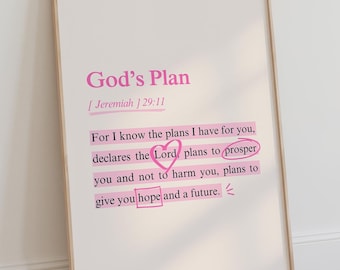 God's Plan
[ Jeremiah ] 29:11
For I know the plans I have for you,
declares the Lord, plans to prosper
you and not to harm you, plans to
give you hope and a future.